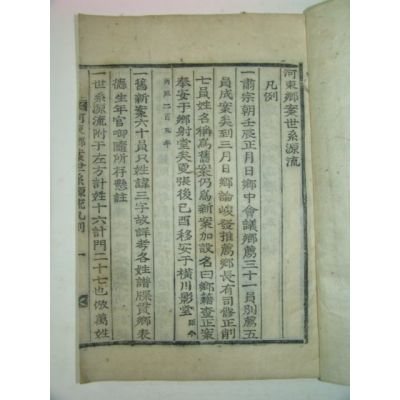 河東鄉案世系源流
凡例
一肅宗朝壬辰正月日鄉中會議鄉薦三十一員別薦五
員成案矣到三月日鄉論峻發推薦鄉長有司修正削
七員姓名稱爲舊案仍爲新案加設名曰鄉籍查正案
奉安于鄉射堂矣更張後己酉移安于橫川影堂
一舊新案六十員只姓諱三字故詳考各姓譜牒貫鄉表
德生年官啣隨所存懸註
一世系源流附于左方計姓十六計門二十七也倣萬姓
河東鄉案世系源流凡例 一